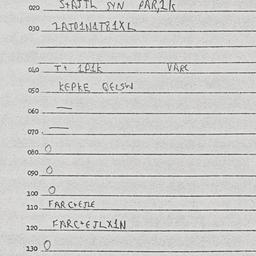 020 S+AJTL SYN PAR,1k
030 2AJO1N1T81XL
040 T+ 1P1K VARC
050 KEPKE QELSW
060 —
070 —
080 O
090 O
100 O
110 FARC+EJLE
120 FARC+EJLX1N
130 O